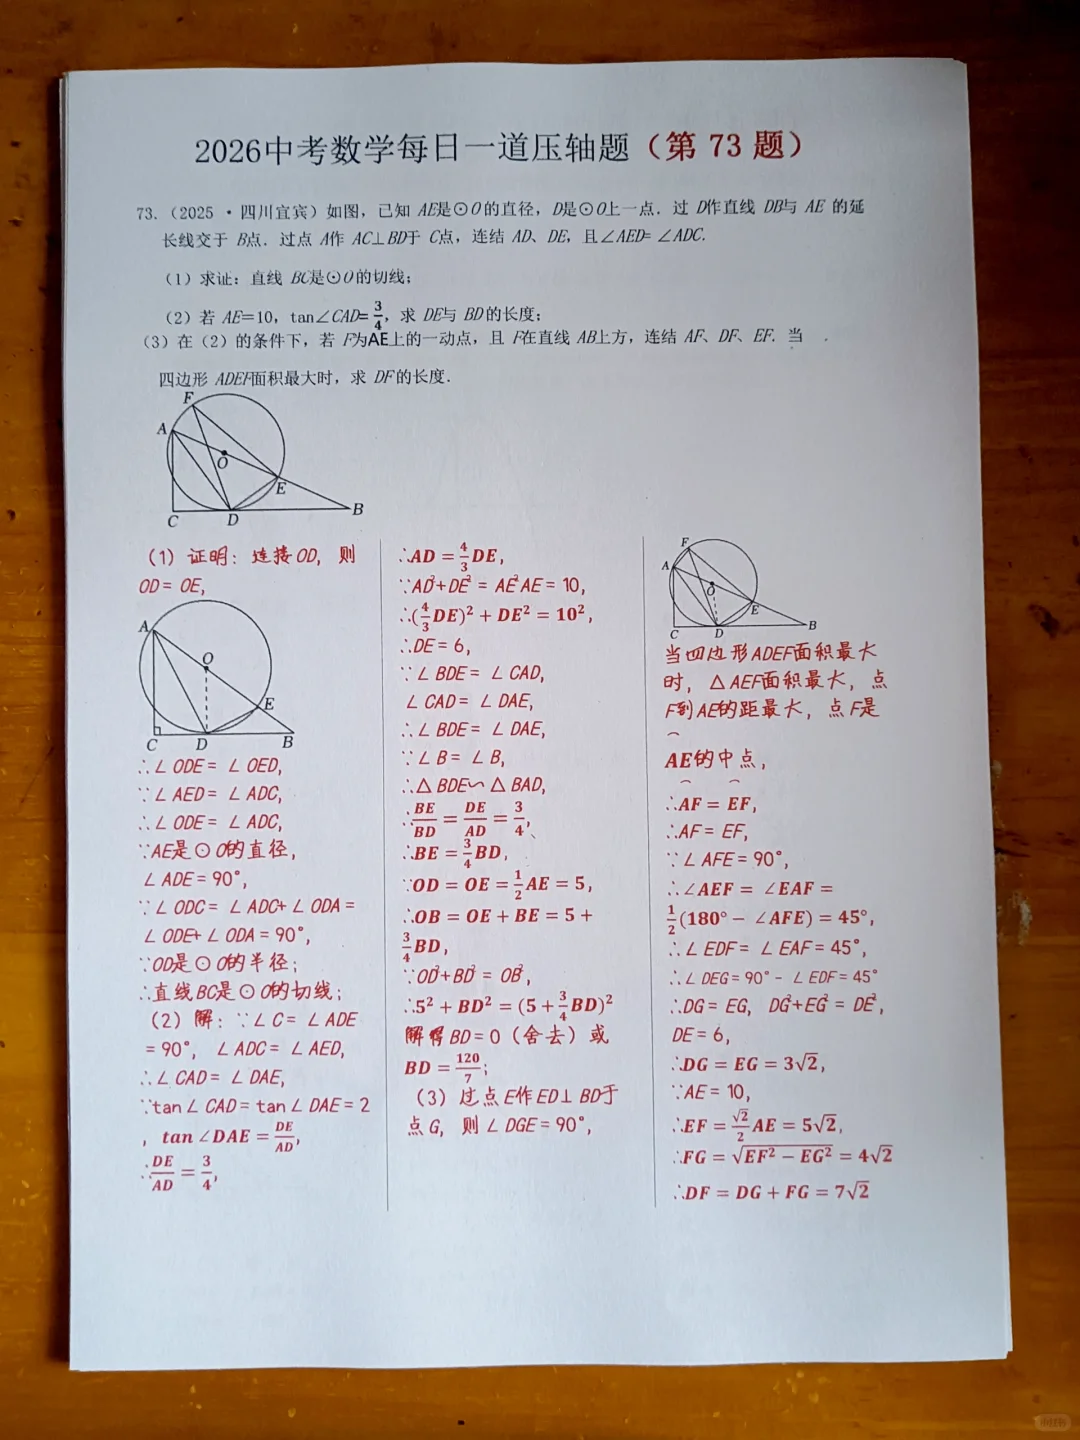 2026中考数学每日一道压轴题（第 73 题）
73.（2025 · 四川宜宾）如图，已知 AE是⊙O的直径，D是⊙O上一点．过 D作直线 DB与 AE 的延
长线交于 B点．过点 A作 AC⊥BD于 C点，连结 AD、DE，且∠AED=∠ADC.
（1）求证：直线 BC是⊙O的切线；
（2）若 AE＝10，tan∠CAD=3/4，求 DE与 BD的长度；
（3）在（2）的条件下，若 F为AE上的一动点，且 F在直线 AB上方，连结 AF、DF、EF．当
四边形 ADEF面积最大时，求 DF的长度．
F
A
O
E
C
D
B
（1）证明：连接OD，则
OD = OE，
A
O
E
C
D
B
∴∠ ODE = ∠ OED,
∵∠ AED = ∠ ADC,
∴∠ ODE = ∠ ADC,
∵AE是⊙O的直径，
∠ ADE = 90°,
∵∠ ODC = ∠ ADC+∠ ODA =
∠ ODE+∠ ODA = 90°,
∵OD是⊙O的半径；
∴直线BC是⊙O的切线；
（2）解：∵∠ C = ∠ ADE
= 90°， ∠ ADC = ∠ AED,
∴∠ CAD = ∠ DAE,
∵tan∠ CAD = tan∠ DAE = 2
，tan∠DAE = DE/AD,
∴DE/AD = 3/4,
∴AD = 4/3 DE,
∵AD²+DE² = AE²AE = 10,
∴(4/3 DE)² + DE² = 10²,
∴DE = 6,
∵∠ BDE = ∠ CAD,
∠ CAD = ∠ DAE,
∴∠ BDE = ∠ DAE,
∵∠ B = ∠ B,
∴△ BDE∽△ BAD,
∴BE/BD = DE/AD = 3/4,
∴BE = 3/4 BD,
∵OD = OE = 1/2 AE = 5,
∴OB = OE + BE = 5 +
3/4 BD,
∵OD²+BD² = OB²,
∴5² + BD² = (5 + 3/4 BD)²
解得BD = 0（舍去）或
BD = 120/7;
（3）过点E作ED⊥BD于
点G，则∠ DGE = 90°,
F
A
O
E
C
D
B
当四边形ADEF面积最大
时，△AEF面积最大，点
F到AE的距最大，点F是
⌒
AE的中点，
⌒ ⌒
∴AF = EF,
∴AF = EF,
∵∠ AFE = 90°,
∴∠AEF = ∠EAF =
1/2(180° − ∠AFE) = 45°,
∴∠ EDF = ∠ EAF = 45°,
∴∠ DEG = 90° - ∠ EDF = 45°
∴DG = EG, DG²+EG² = DE²,
DE = 6,
∴DG = EG = 3√2,
∵AE = 10,
∴EF = √2/2 AE = 5√2,
∴FG = √(EF² − EG²) = 4√2
∴DF = DG + FG = 7√2
小红书